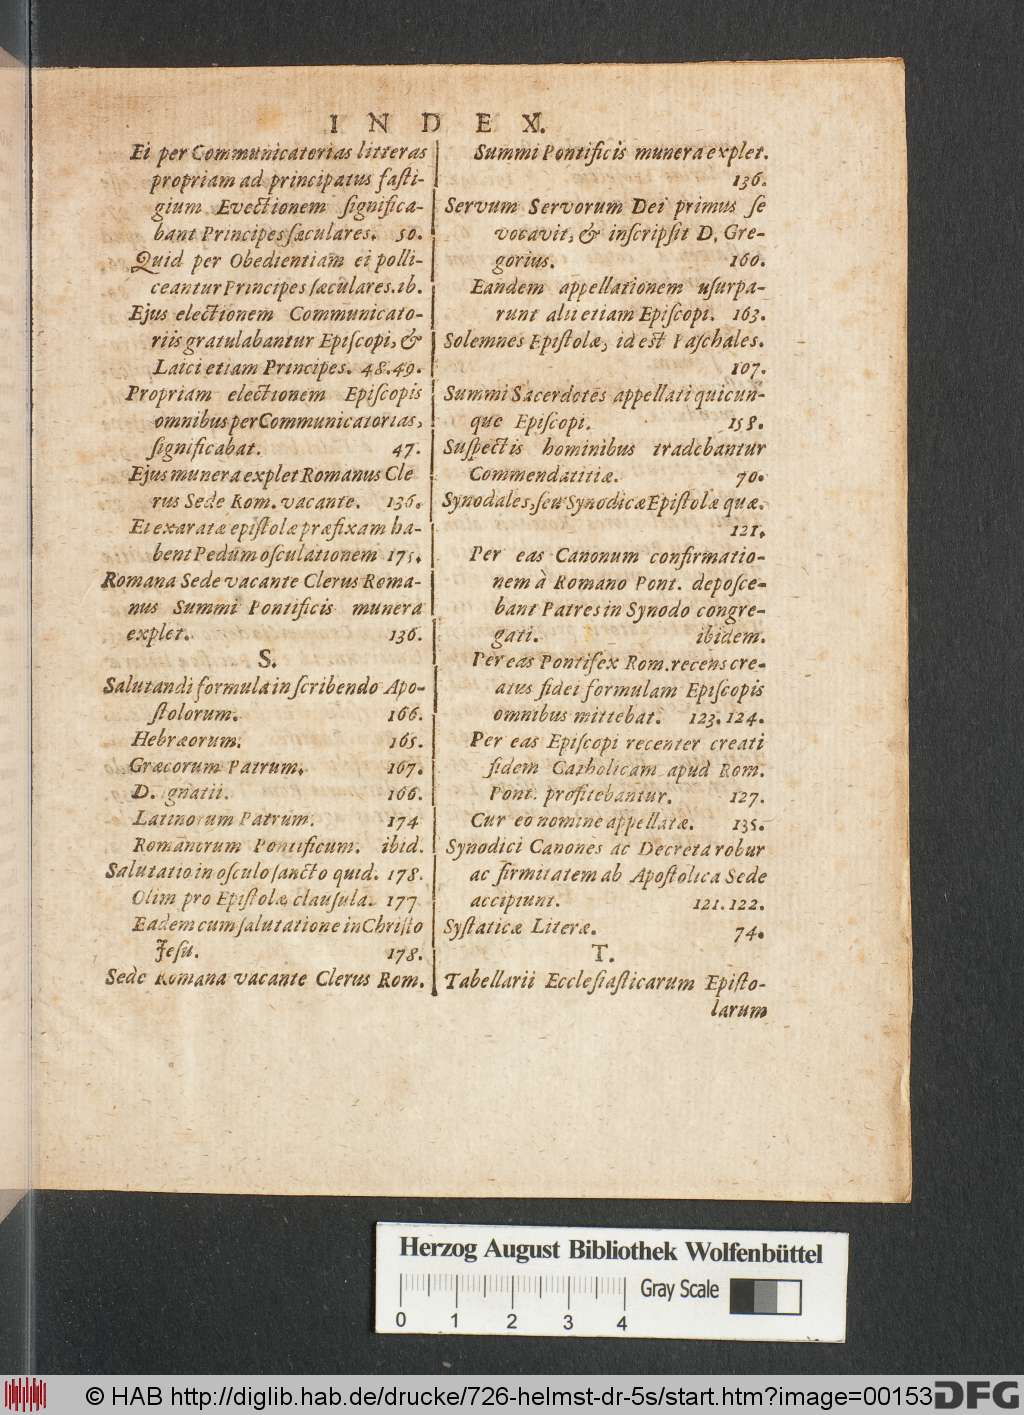 INDEX.
Ei per Communicatorias litteras
propriam ad principatus fasti-
gium Evectionem significa-
bant Principes sæculares. 50.
Quid per Obedientiam ei polli-
ceantur Principes sæculares. ib.
Ejus electionem Communicato-
riis gratulabantur Episcopi, &
Laici etiam Principes. 48. 49.
Propriam electionem Episcopis
omnibus per Communicatorias,
significabat. 47.
Ejus munera explet Romanus Cle
rus Sede Rom. vacante. 136.
Ei exaratæ epistolæ præfixam ha-
bent Pedum osculationem 175.
Romana Sede vacante Clerus Roma-
nus Summi Pontificis munera
explet. 136.
S.
Salutandi formula in scribendo Apo-
stolorum. 166.
Hebræorum. 165.
Græcorum Patrum. 167.
D. gnatii. 166.
Latinorum Patrum. 174
Romanorum Pontificum. ibid.
Salutatio in osculo sancto quid. 178.
Olim pro Epistolæ clausula. 177
Eadem cum salutatione in Christo
Jesu. 178.
Sede Romana vacante Clerus Rom.
Summi Pontificis munera explet.
136.
Servum Servorum Dei primus se
vocavit, & inscripsit D. Gre-
gorius. 160.
Eandem appellationem usurpa-
runt alii etiam Episcopi. 163.
Solemnes Epistolæ, id est Paschales.
107.
Summi Sacerdotes appellati quicun-
que Episcopi. 158.
Suspectis hominibus tradebantur
Commendatitiæ. 70.
Synodales, seu Synodicæ Epistolæ quæ.
121.
Per eas Canonum confirmatio-
nem à Romano Pont. deposce-
bant Patres in Synodo congre-
gati. ibidem.
Per eas Pontifex Rom. recens cre-
atus fidei formulam Episcopis
omnibus mittebat. 123. 124.
Per eas Episcopi recenter creati
fidem Catholicam apud Rom.
Pont. profitebantur. 127.
Cur eo nomine appellatæ. 135.
Synodici Canones ac Decreta robur
ac firmitatem ab Apostolica Sede
accipiunt. 121. 122.
Systaticæ Literæ. 74.
T.
Tabellarii Ecclesiasticarum Episto-
larum
Herzog August Bibliothek Wolfenbüttel
Gray Scale
0 1 2 3 4
© HAB http://diglib.hab.de/drucke/726-helmst-dr-5s/start.htm?image=00153
DFG